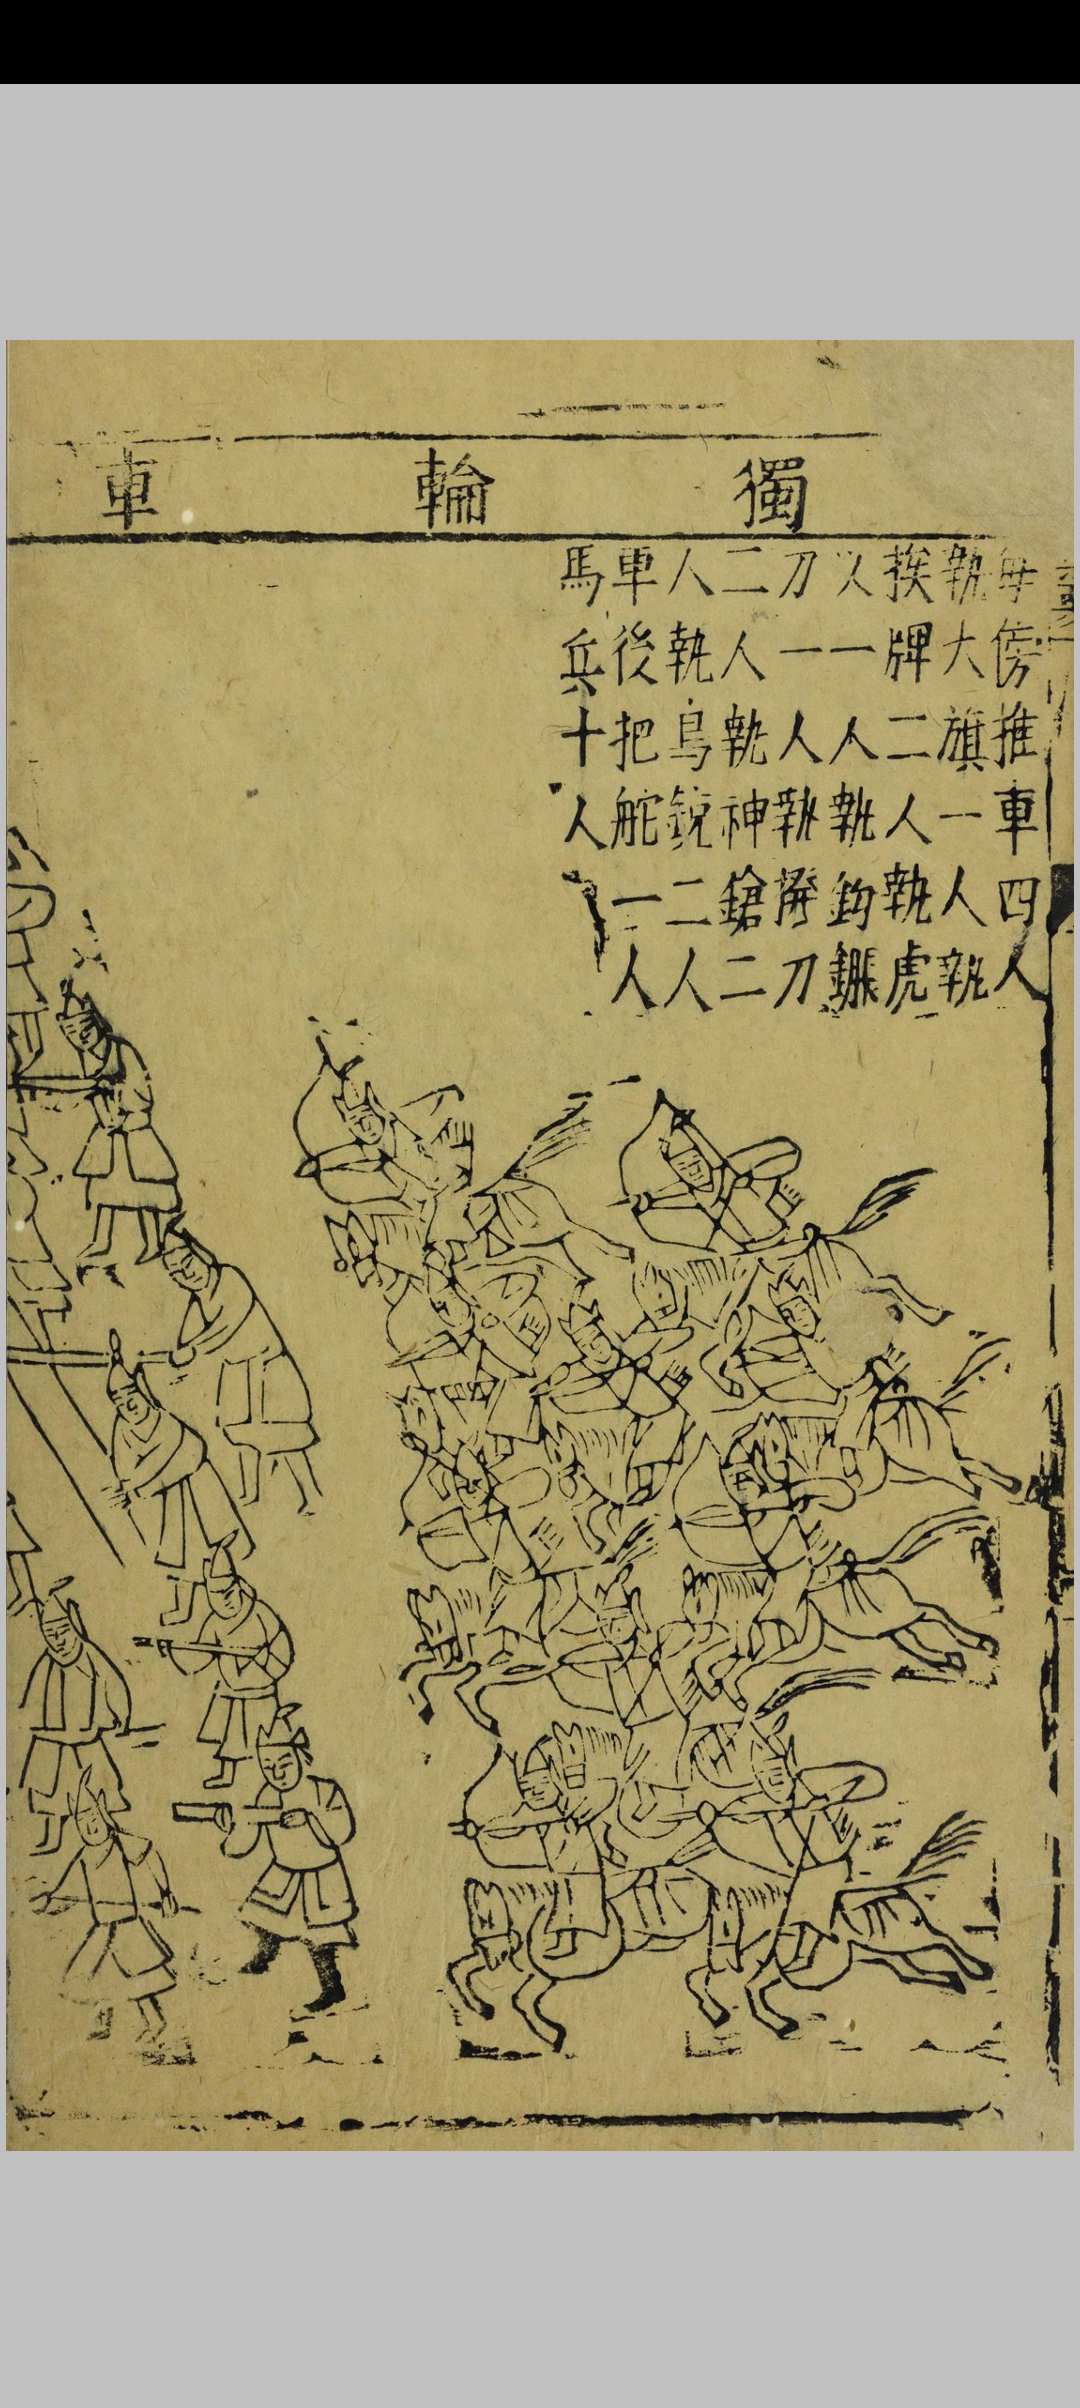 獨輪車
每傍推車四人
執大旗一人執
挨牌二人執虎
叉一人執鈎鐮
刀一人執刀二
人執神鎗二
人執鳥銃二人
車後把舵一人
馬兵十人